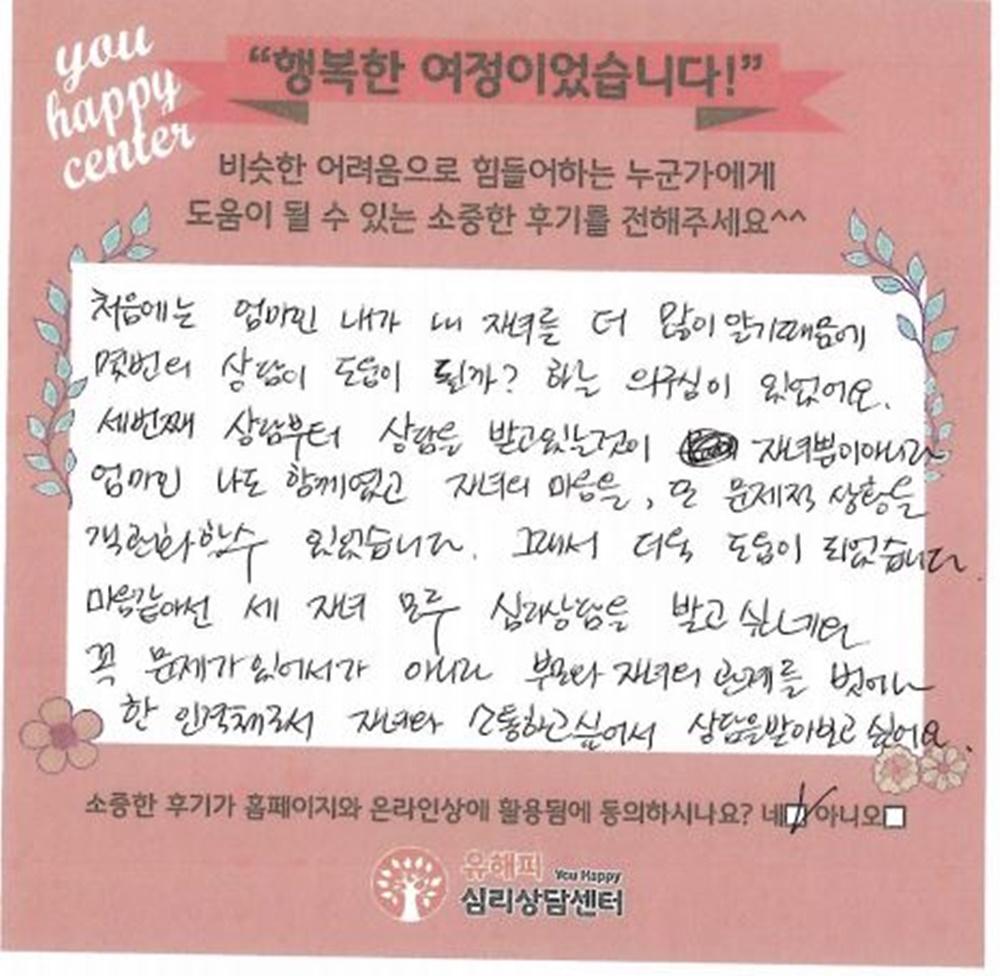 you
happy
center
“행복한 여정이었습니다!”
비슷한 어려움으로 힘들어하는 누군가에게
도움이 될 수 있는 소중한 후기를 전해주세요^^
처음에는 엄마인 내가 내 자녀를 더 많이 알기때문에
몇번의 상담이 도움이 될까? 하는 의구심이 있었어요.
세번째 상담부터 상담을 받고있는것이 자녀뿐이아니라
엄마인 나도 함께였고 자녀의 마음을, 또 문제적 상황을
객관화할수 있었습니다. 그래서 더욱 도움이 되었습니다.
마음같아선 세 자녀 모두 심리상담을 받고 싶네요
꼭 문제가있어서가 아니라 부모와 자녀의 관계를 벗어나
한 인격체로서 자녀와 소통하고싶어서 상담을받아보고 싶어요.
소중한 후기가 홈페이지와 온라인상에 활용됨에 동의하시나요? 네 아니오
유해피 You Happy
심리상담센터